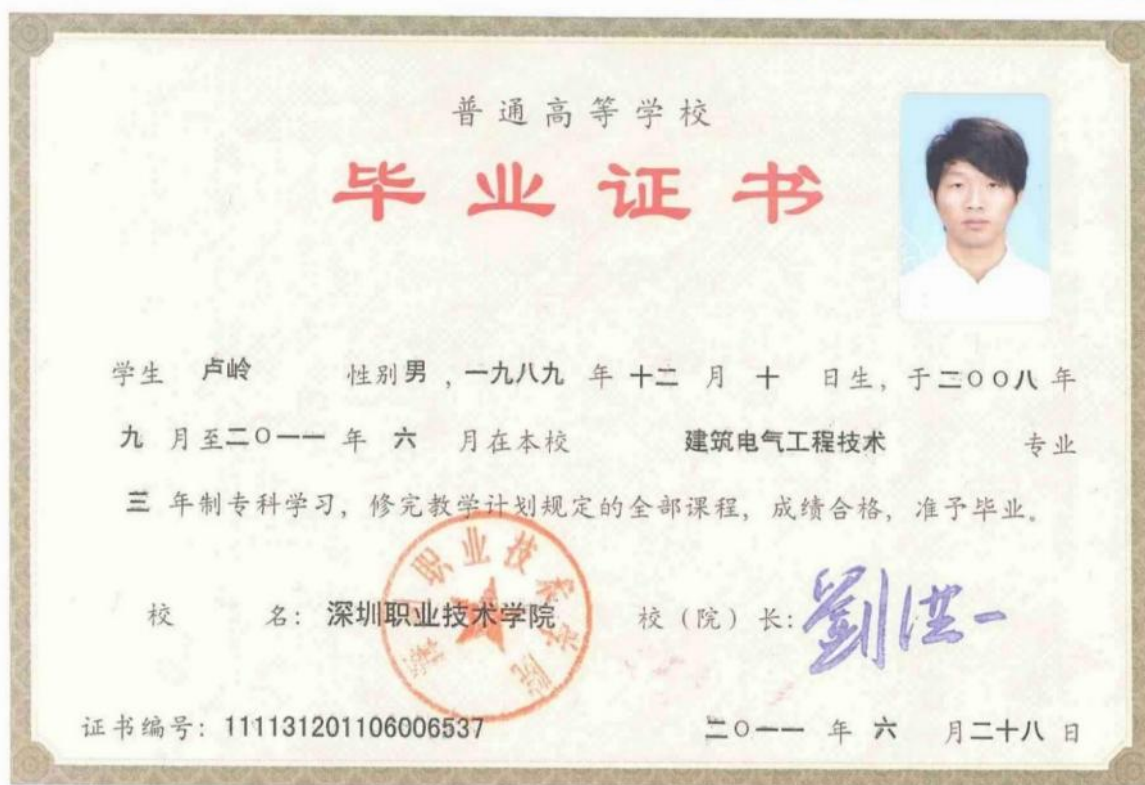 普通高等学校
毕业证书
学生 卢岭 性别 男 , 一九八九 年 十二 月 十 日生, 于二〇〇八 年
九 月至二〇一一 年 六 月在本校 建筑电气工程技术 专业
三 年制专科学习, 修完教学计划规定的全部课程, 成绩合格, 准予毕业。
校 名: 深圳职业技术学院 校 (院) 长: 劉洪一
深圳职业技术学院
证书编号: 111131201106006537 二〇一一 年 六 月二十八日